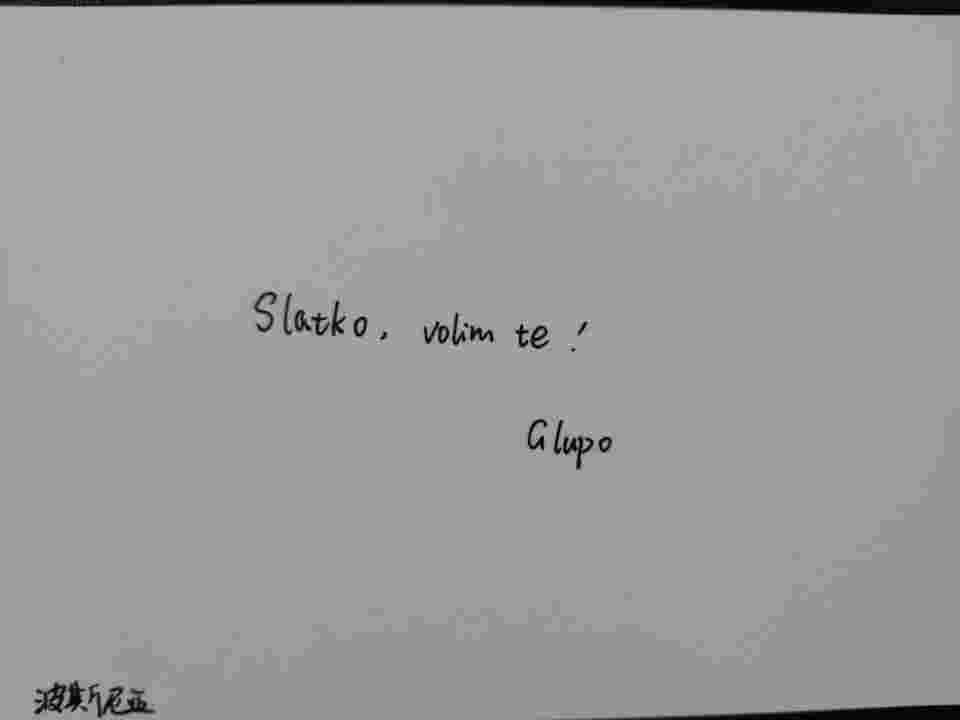 Slatko, volim te!
Glupo
波斯尼亚